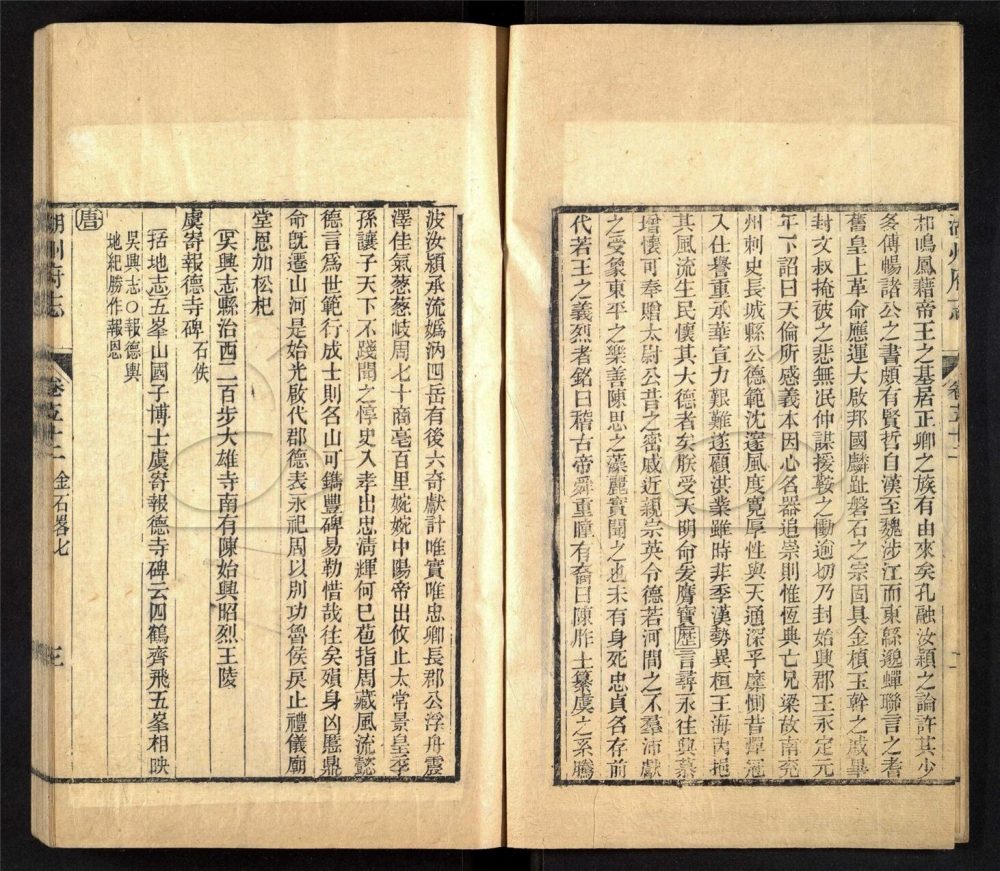 湖州府志 卷五十二
邡鳴鳳藉帝王之基居正卿之族有由來矣孔融汝穎之論許其少
多傳暢諸公之書頗有賢哲自漢至魏涉江而東緜邈蟬聯言之者
舊皇上革命應運大啟邦國麟趾磐石之宗固具金楨玉幹之戚畢
封文叔掩被之悲無泯仲謀援鞍之慟逾切乃封始興郡王永定元
年下詔曰天倫所感義本因心名器追崇則惟恆典亡兄梁故南兖
州刺史長城縣公德範沈邃風度寬厚性與天通深乎靡惻昔彈冠
入仕譽重承華宣力艱難遂顧洪業雖時非季漢勢異桓王海內挹
其風流生民懷其大德者矣朕受天明命爰膺寶歷言尋永往與慕
增懷可奉贈太尉公昔之密戚近親崇英令德若河間之不羣沛獻
之受象東平之樂善陳思之藻麗實聞之也未有身死忠貞名存前
代若王之義烈者銘曰稽古帝舜重瞳有裔曰陳胙土纂虞之系騰
波汝潁承流嬀汭四岳有後六奇獻計唯實唯忠卿長郡公浮舟震
澤佳氣葱葱岐周七十商亳百里婉婉中陽帝出攸止太常景皇季
孫讓子天下不踐聞之惇史入孝出忠淸輝何已苞指周藏風流懿
德言爲世範行成士則名山可鐫豐碑易勒惜哉往矣殞身凶慝鼎
命旣遷山河是始光啟代郡德表永祀周以別功魯侯戾止禮儀廟
堂恩加松杞
吳興志縣治西二百步大雄寺南有陳始興昭烈王陵
虞寄報德寺碑 石佚
括地志五峯山國子博士虞寄報德寺碑云四鶴齊飛五峯相映
吳興志〇報德輿
地紀勝作報恩
唐
湖州府志 卷五十二 金石畧七 三